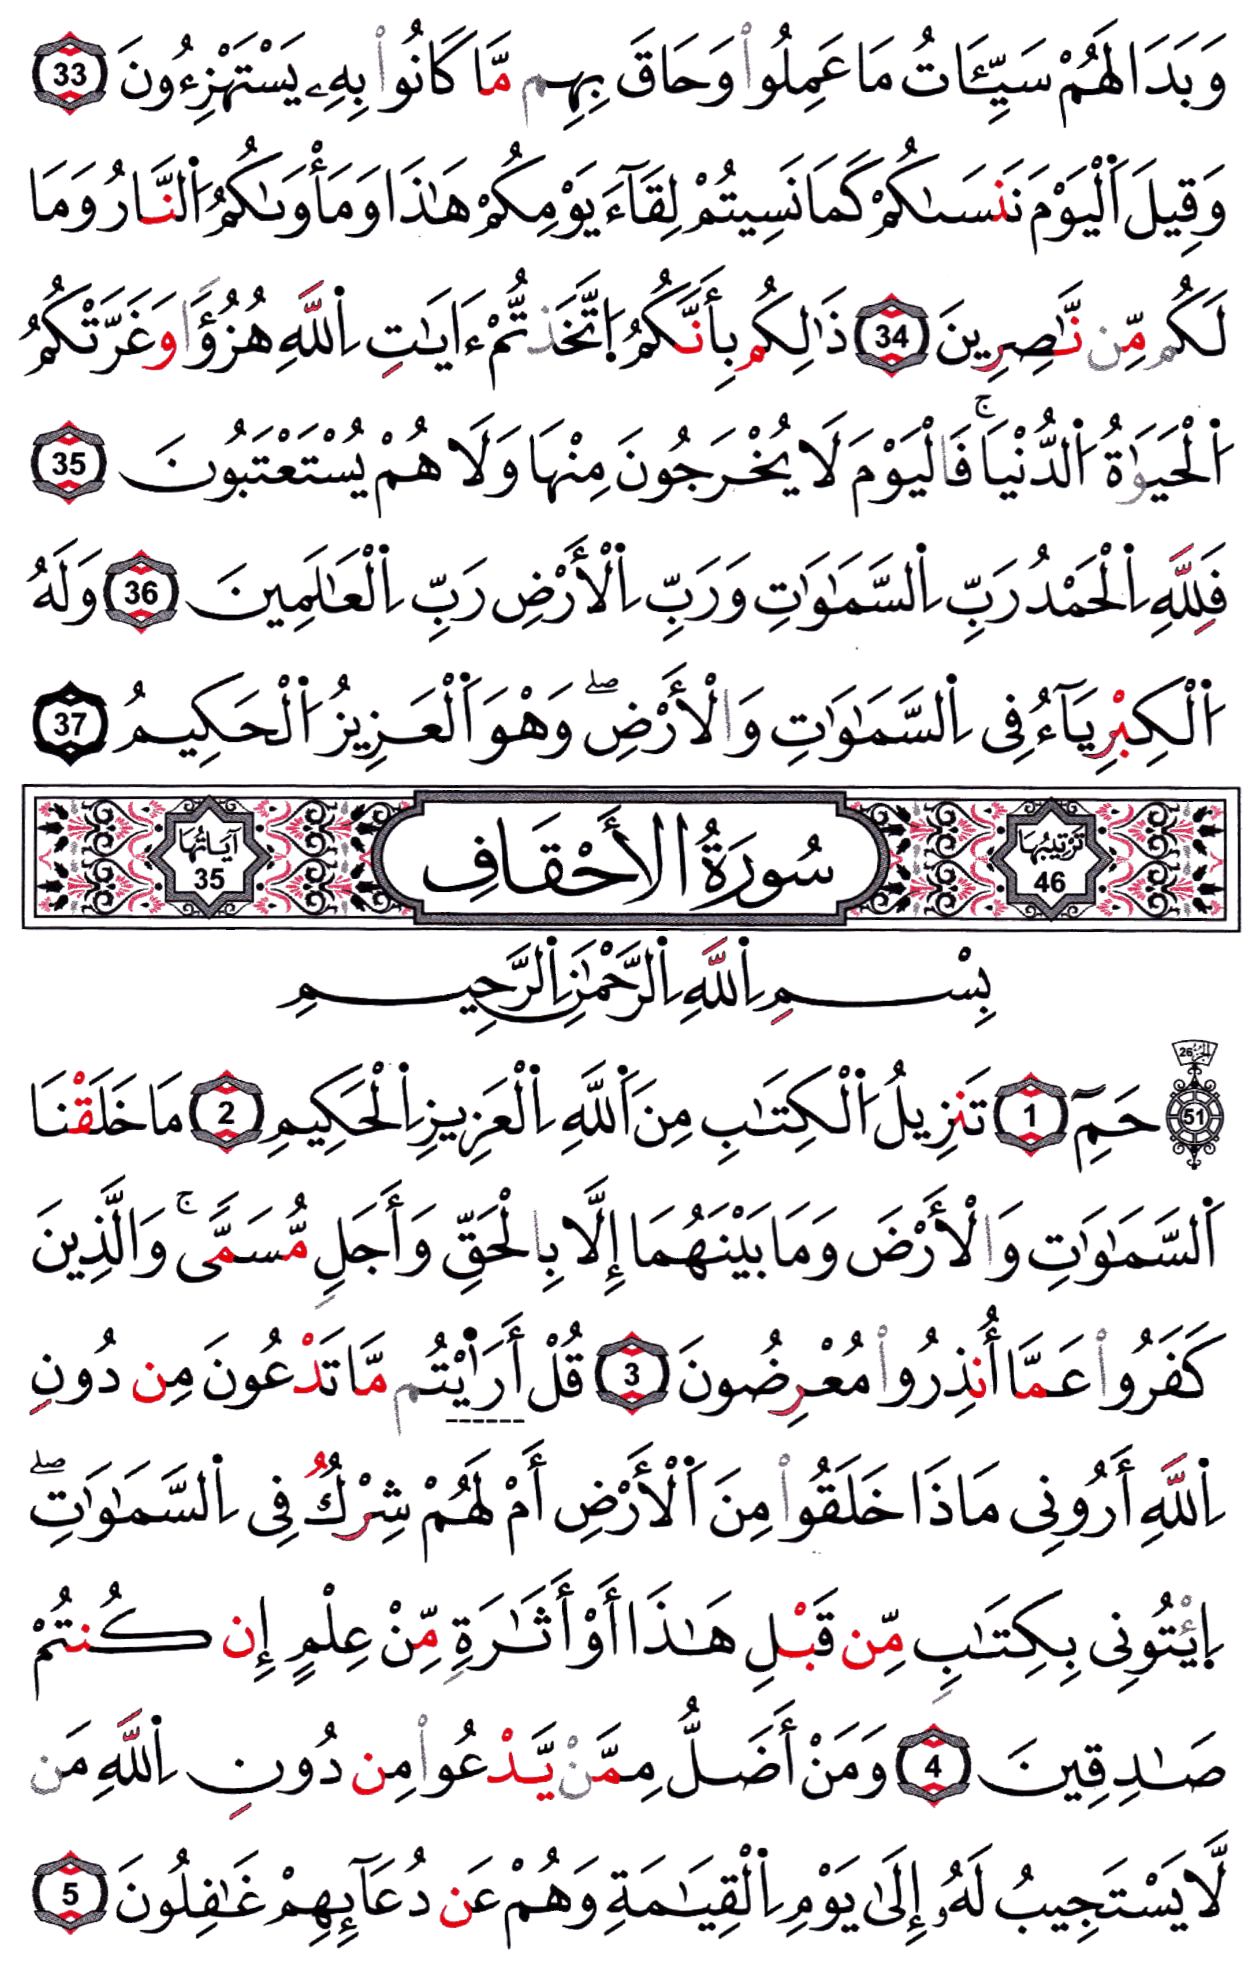 وَبَدَا لَهُمْ سَيِّـَٔاتُ مَا عَمِلُواْ وَحَاقَ بِهِم مَّا كَانُواْ بِهِۦ يَسْتَهْزِءُونَ 33
وَقِيلَ اَ۬لْيَوْمَ نَنسَىٰكُمْ كَمَا نَسِيتُمْ لِقَآءَ يَوْمِكُمْ هَٰذَا وَمَأْوَىٰكُمُ اُ۬لنَّارُ وَمَا
لَكُم مِّن نَّٰصِرِينَ 34 ذَٰلِكُم بِأَنَّكُمُ اُ۪تَّخَذتُّمْ ءَايَٰتِ اِ۬للَّهِ هُزُؤًا وَغَرَّتْكُمُ
اُ۬لْحَيَوٰةُ اُ۬لدُّنْيَاۚ فَالْيَوْمَ لَا يُخْرَجُونَ مِنْهَا وَلَا هُمْ يُسْتَعْتَبُونَ 35
فَلِلَّهِ اِ۬لْحَمْدُ رَبِّ اِ۬لسَّمَٰوَٰتِ وَرَبِّ اِ۬لْأَرْضِ رَبِّ اِ۬لْعَٰلَمِينَ 36 وَلَهُ
اُ۬لْكِبْرِيَآءُ فِى اِ۬لسَّمَٰوَٰتِ وَالْأَرْضِۖ وَهْوَ اَ۬لْعَزِيزُ اُ۬لْحَكِيمُ 37
تَرْتِيبُهَا 46 سُورَةُ الأَحْقَافِ آيَاتُهَا 35
بِسْمِ اِ۬للَّهِ اِ۬لرَّحْمَٰنِ اِ۬لرَّحِيمِ
الجزء 26
51 حَمِٓ 1 تَنزِيلُ اُ۬لْكِتَٰبِ مِنَ اَ۬للَّهِ اِ۬لْعَزِيزِ اِ۬لْحَكِيمِ 2 مَا خَلَقْنَا
اَ۬لسَّمَٰوَٰتِ وَالْأَرْضَ وَمَا بَيْنَهُمَا إِلَّا بِالْحَقِّ وَأَجَلٍ مُّسَمًّىۚ وَالَّذِينَ
كَفَرُواْ عَمَّا أُنذِرُواْ مُعْرِضُونَ 3 قُلْ أَرَٰ۬يْتُم مَّا تَدْعُونَ مِن دُونِ
اِ۬للَّهِ أَرُونِى مَاذَا خَلَقُواْ مِنَ اَ۬لْأَرْضِ أَمْ لَهُمْ شِرْكٌ فِى اِ۬لسَّمَٰوَٰتِۖ
اِ۪ئْتُونِى بِكِتَٰبٍ مِّن قَبْلِ هَٰذَا أَوْ أَثَٰرَةٍ مِّنْ عِلْمٍ إِن كُنتُمْ
صَٰدِقِينَ 4 وَمَنْ أَضَلُّ مِمَّنْ يَّدْعُواْ مِن دُونِ اِ۬للَّهِ مَن
لَّا يَسْتَجِيبُ لَهُۥ إِلَىٰ يَوْمِ اِ۬لْقِيَٰمَةِ وَهُمْ عَن دُعَآئِهِمْ غَٰفِلُونَ 5